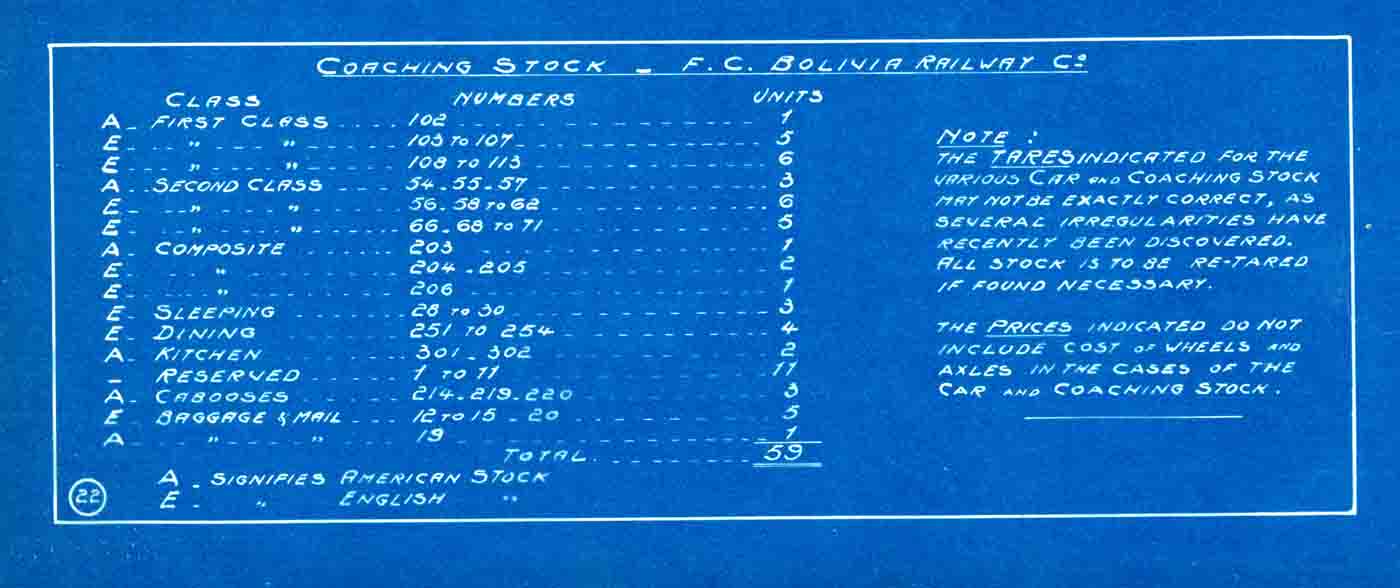 COACHING STOCK - F.C. BOLIVIA RAILWAY Co
CLASS NUMBERS UNITS
A - FIRST CLASS 102 1
E - " " 103 TO 107 5
E - " " 108 TO 113 6
A - SECOND CLASS 54-55-57 3
E - " " 56-58 TO 62 6
E - " " 66-68 TO 71 5
A - COMPOSITE 203 1
E - " 204-205 2
E - " 206 1
E - SLEEPING 28 TO 30 3
E - DINING 251 TO 254 4
A - KITCHEN 301-302 2
- RESERVED 1 TO 11 11
A - CABOOSES 214-219-220 3
E - BAGGAGE & MAIL 12 TO 15-20 5
A - " " 19 1
TOTAL 59
A - SIGNIFIES AMERICAN STOCK
E - " ENGLISH "
22
NOTE:
THE TARES INDICATED FOR THE
VARIOUS CAR AND COACHING STOCK
MAY NOT BE EXACTLY CORRECT, AS
SEVERAL IRREGULARITIES HAVE
RECENTLY BEEN DISCOVERED.
ALL STOCK IS TO BE RE-TARED
IF FOUND NECESSARY.
THE PRICES INDICATED DO NOT
INCLUDE COST OF WHEELS AND
AXLES IN THE CASES OF THE
CAR AND COACHING STOCK.